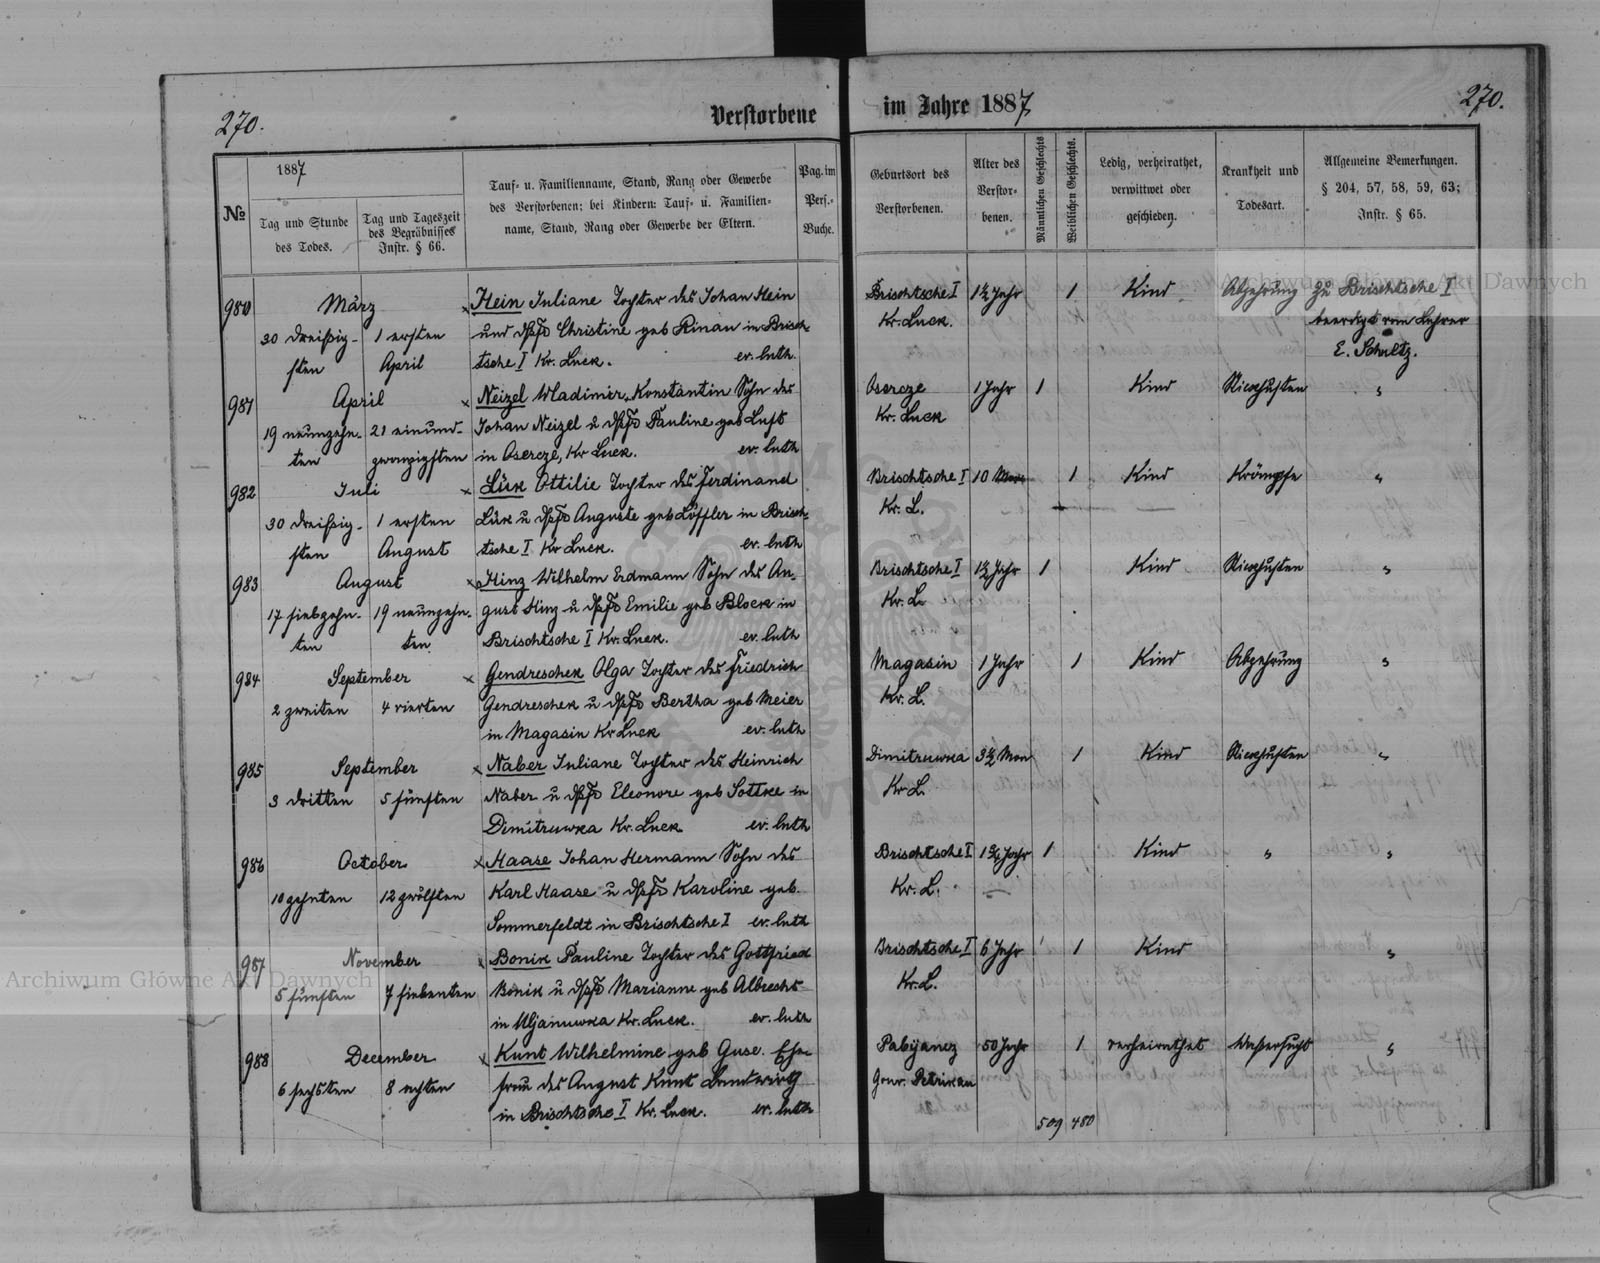 270.
Verstorbene
im Jahre 1887
270.
№
1887
Tag und Stunde
des Todes.
Tag und Tageszeit
des Begräbnisses
Instr. § 66.
Tauf- u. Familienname, Stand, Rang oder Gewerbe
des Verstorbenen; bei Kindern: Tauf- u. Familien-
name, Stand, Rang oder Gewerbe der Eltern.
Pag. im
Pers.-
Buche.
Geburtsort des
Verstorbenen.
Alter des
Verstor-
benen.
Männlichen Geschlechts
Weiblichen Geschlechts.
Ledig, verheirathet,
verwittwet oder
geschieden.
Krankheit und
Todesart.
Allgemeine Bemerkungen.
§ 204, 57, 58, 59, 63;
Instr. § 65.
Archiwum Główne Akt Dawnych
980 März x Hein Juliane Tochter des Johan Hein Brischtsche I 1½ Jahr 1 Kind Abzehrung Zu Brischtsche I
30 dreißig- 1 ersten und Christine geb Rinau in Brisch- Kr. Luck. beerdigt vom Lehrer
sten April tsche I Kr. Luck. ev. luth. E. Schultz.
981 April x Neizel Wladimir Konstantin Sohn des Osercze 1 Jahr 1 Kind Stickhusten "
19 neunzehn- 21 einund- Johan Neizel u Pauline geb Luft Kr. Luck
ten zwanzigsten in Osercze, Kr Luck. ev. luth
982 Juli x Lük Ottilie Tochter des Ferdinand Brischtsche I 10 1 Kind Krämpfe "
30 dreißig- 1 ersten Lük u Auguste geb Löffler in Brisch- Kr. L.
sten August tsche I Kr Luck. ev. luth
983 August x Hinz Wilhelm Erdmann Sohn des Au- Brischtsche I 1½ Jahr 1 Kind Stickhusten "
17 siebzehn- 19 neunzehn- gust Hinz u Emilie geb Block in Kr. L.
ten ten Brischtsche I Kr. Luck. ev. luth
984 September x Gendreschek Olga Tochter des Friedrich Magasin 1 Jahr 1 Kind Abzehrung "
2 zweiten 4 vierten Gendreschek u Bertha geb Meier Kr. L.
in Magasin Kr Luck ev. luth
985 September x Naber Juliane Tochter des Heinrich Dimitruwka 3½ Mon 1 Kind Stickhusten "
3 dritten 5 fünften Naber u Eleonore geb Sottke in Kr. L.
Dimitruwka Kr. Luck ev. luth
986 October x Haase Johan Hermann Sohn des Brischtsche I 1 Jahr 1 Kind " "
10 zehnten 12 zwölften Karl Haase u Karoline geb. Kr. L.
Sommerfeldt in Brischtsche I ev. luth
987 November x Bonik Pauline Tochter des Gottfried Brischtsche I 6 Jahr 1 Kind "
5 fünften 7 siebenten Bonik u Marianne geb Albrecht Kr. L.
in Uljanuwka Kr. Luck. ev. luth
988 December x Kunt Wilhelmine geb Guse. Ehe- Pabijanez 50 Jahr 1 verheirathet Waßersucht "
6 sechsten 8 achten frau des August Kunt Landwirth Gouv. Petrikau
in Brischtsche I Kr. Luck. ev. luth
509 480
Archiwum Główne Akt Dawnych